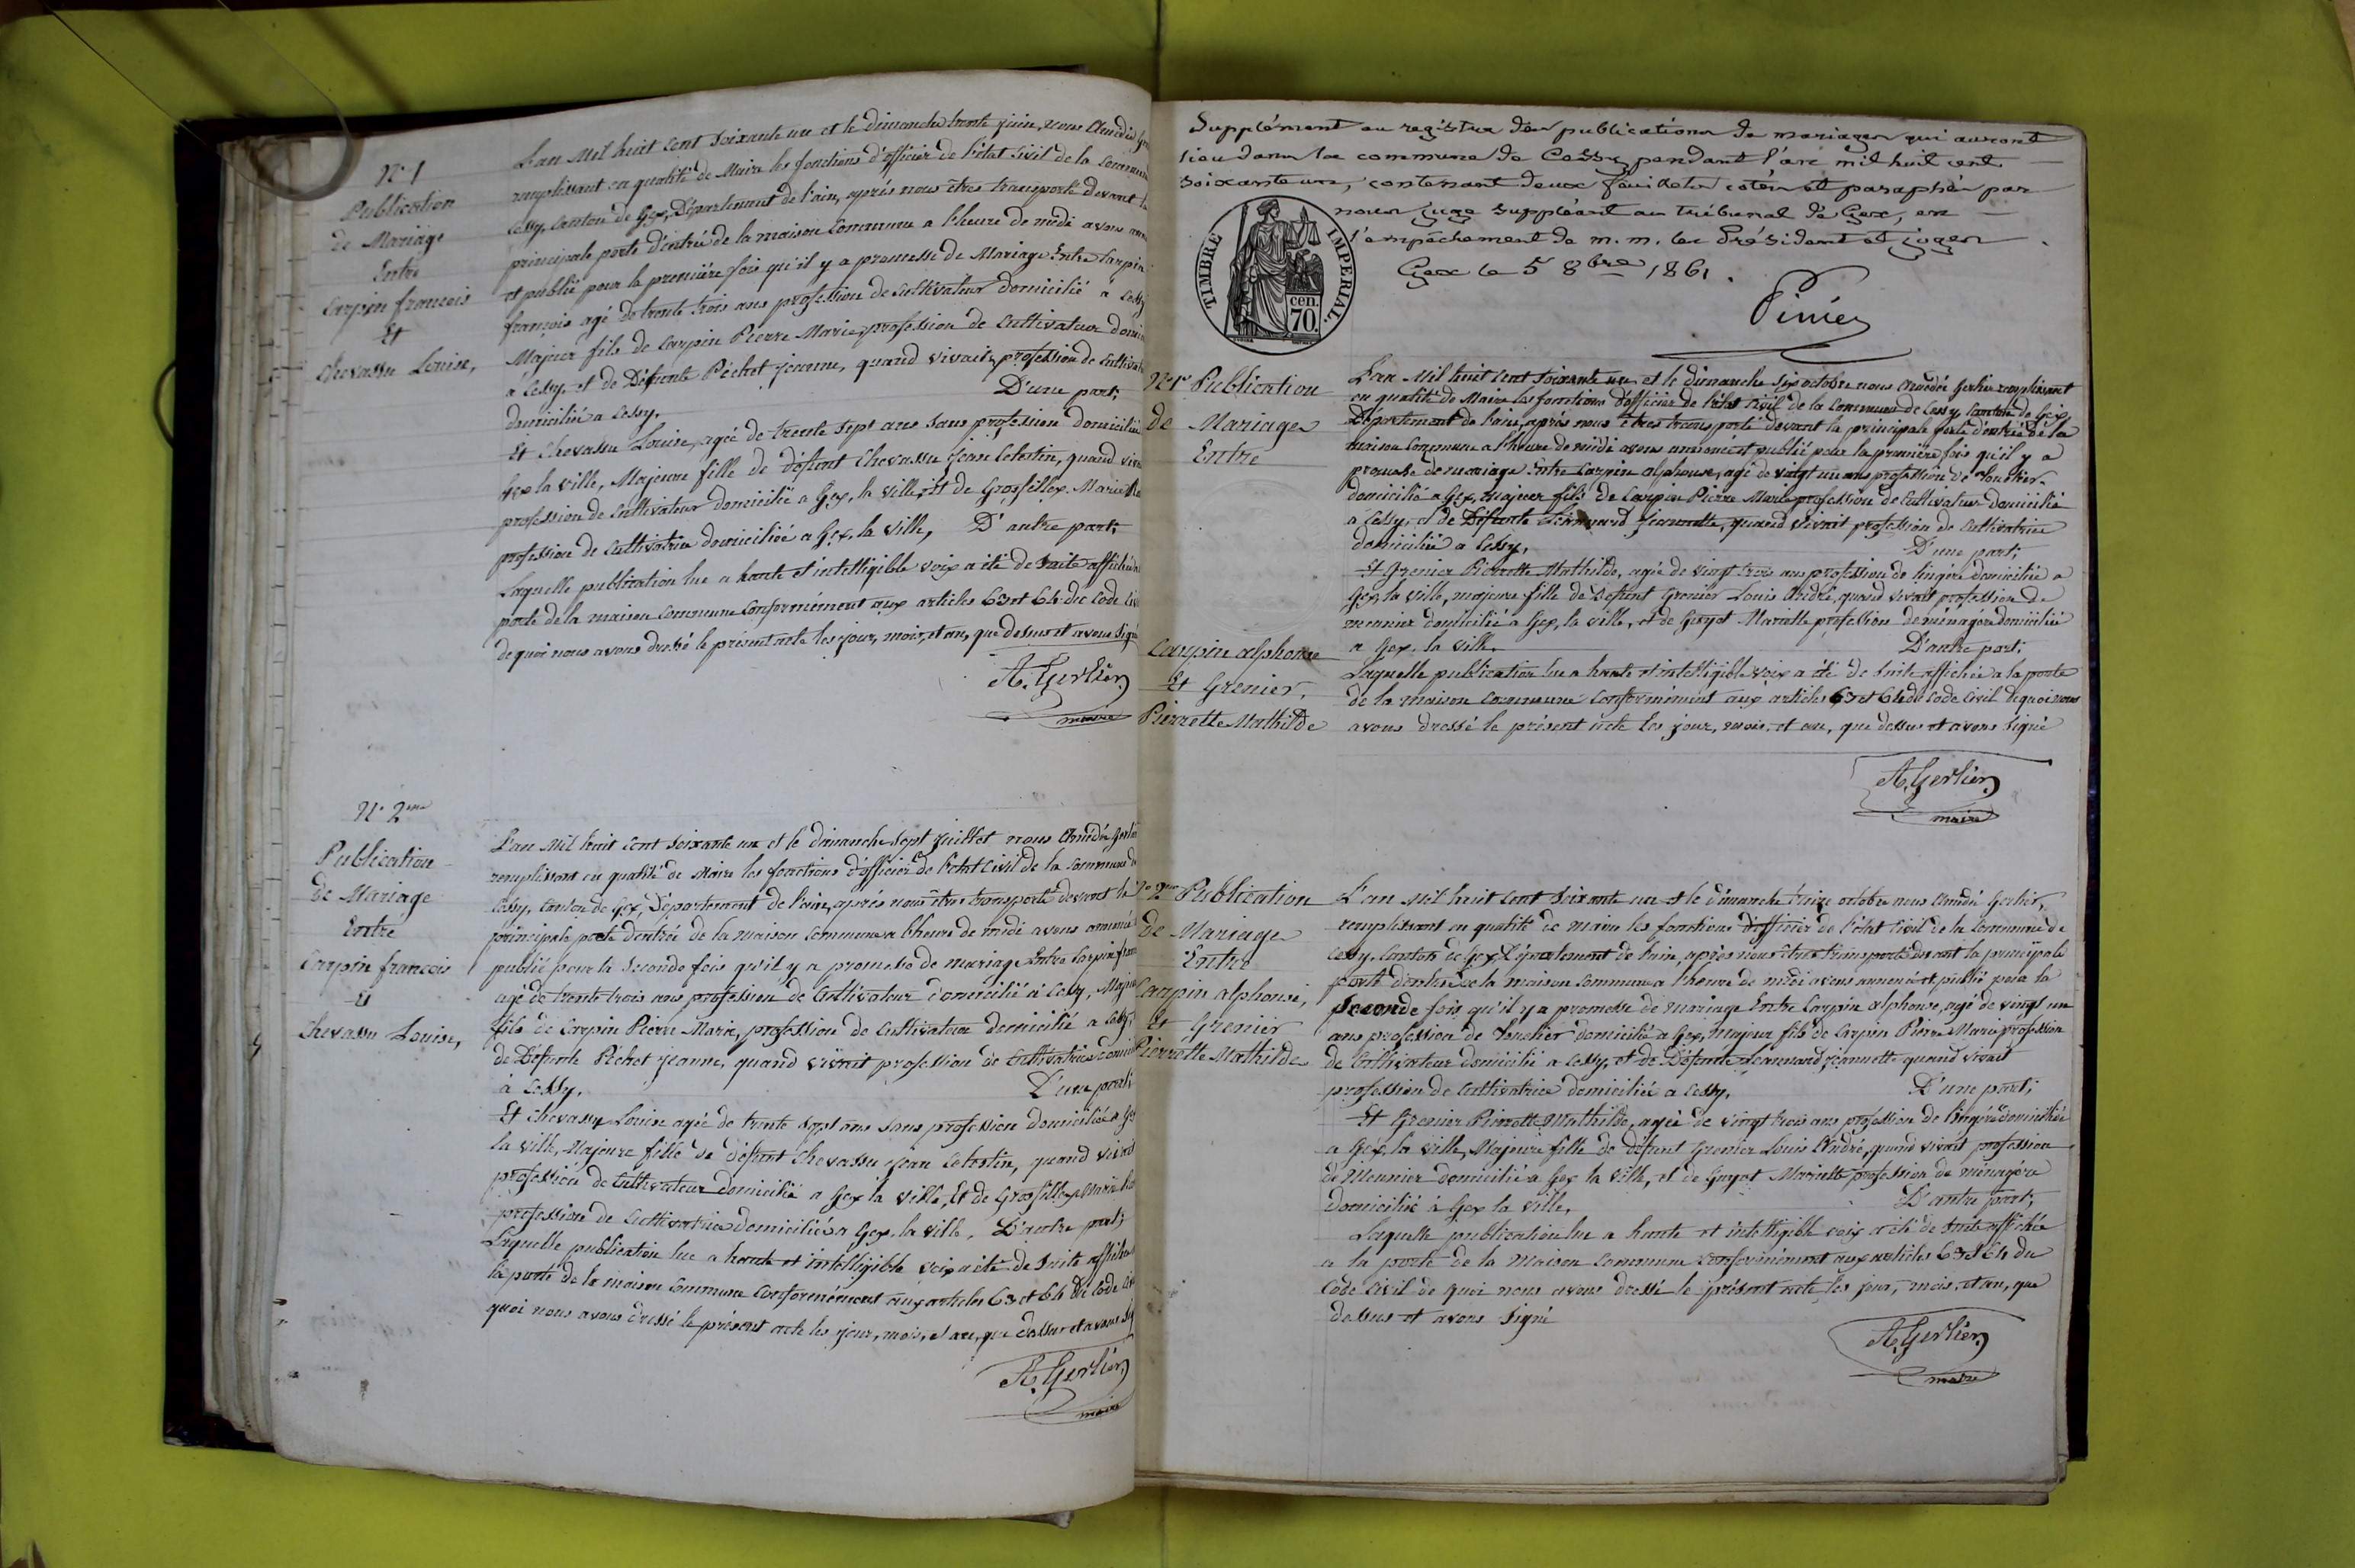 N° 1
Publication
de Mariage
Entre
Carpin francois
Et
Chevassu Louise,
L'an Mil huit cent soixante un et le dimanche trente juin, nous Amédée
remplissant en qualité de Maire les fonctions d'officier de l'état civil de la
Cessy, Canton de Gex, Département de l'ain, après nous êtres transporté devant la
principale porte d'entrée de la maison Commune a l'heure de midi avons
et publié pour la première fois qu'il y a promesse de Mariage Entre Carpin
françois agé de trente trois ans profession de Cultivateur domicilié à Cessy
Majeur fils de Carpin Pierre Marie, profession de Cultivateur
à Cessy, et de Défunte Péchet Jeanne, quand vivait, profession de
domiciliée a Cessy, D'une part;
Et Chevassu Louise, agée de trente sept ans sans profession domiciliée
Gex la ville, Majeure fille de défunt Chevassu Jean Celestin, quand
profession de Cultivateur domicilié a Gex, la ville, Et de Grosfillex Marie
profession de Cultivatrice domiciliée a Gex, la ville, D'autre part;
Laquelle publication lue a haute et intelligible voix a été de suite affichée
porte de la maison Commune Conformément aux articles 63 et 64 du Code
de quoi nous avons dressé le présent acte les jour, mois, et an, que dessus et avons signé
A. Gerlier
maire
N° 2me
Publication
de Mariage
Entre
Carpin francois
Et
Chevassu Louise,
L'an Mil huit cent soixante un et le dimanche sept juillet nous Amédée
remplissant en qualité de Maire les fonctions d'officier de l'état Civil de la Commune de
Cessy, canton de Gex, Département de l'ain, après nous être transporté devant la
principale porte d'entrée de la maison Commune a l'heure de midi avons annoncé
publié pour la seconde fois qu'il y a promesse de mariage Entre Carpin
agé de trente trois ans profession de Cultivateur domicilié à Cessy,
fils de Carpin Pierre Marie, profession de Cultivateur domicilié a Cessy,
de Défunte Péchet Jeanne, quand vivait profession de Cultivatrice
à Cessy, D'une part;
Et Chevassu Louise agée de trente sept ans sans profession domiciliée a Gex
la ville, Majeure fille de défunt Chevassu Jean Celestin, quand vivait
profession de Cultivateur domicilié a Gex la ville, Et de Grosfillex Marie
profession de Cultivatrice domiciliée a Gex, la ville, D'autre part;
Laquelle publication lue a haute et intelligible voix a été de suite affichée
la porte de la maison Commune Conformément aux articles 63 et 64 du Code
quoi nous avons dressé le présent acte les jour, mois, et an, que dessus et avons
A. Gerlier
maire
Supplément au registre des publications de mariages qui auront
lieu dans la commune de Cessy pendant l'an mil huit cent
soixante un, contenant deux feuillets cotés et paraphés par
nous juge suppléant au tribunal de Gex, en
l'empêchement de m. m. les Président et juges
Gex le 5 8bre 1861.
TIMBRE IMPERIAL.
cen.
70.
N° 1er Publication
de Mariage
Entre
Carpin alphonse
Et Grenier,
Pierrette Mathilde
L'an Mil huit cent soixante un et le dimanche six octobre nous Amédée Gerlier remplissant
en qualité de Maire les fonctions d'officier de l'état civil de la Commune de Cessy, Canton de Gex,
Département de l'ain, après nous êtres transporté devant la principale porte d'entrée de la
maison Commune a l'heure de midi avons annoncé et publié pour la première fois qu'il y a
promesse de mariage Entre Carpin alphonse, agé de vingt un ans profession de boucher
domicilié a Gex, majeur fils de Carpin Pierre Marie profession de Cultivateur domicilié
à Cessy, et de Défunte Léannard Jeannette, quand vivait profession de Cultivatrice
domiciliée a Cessy, D'une part;
Et Grenier Pierrette Mathilde, agée de vingt trois ans profession de lingère domiciliée a
Gex la ville, majeure fille de défunt Grenier Louis André, quand vivait profession de
meunier domicilié a Gex, la ville, et de Guyot Mariette profession de ménagère domiciliée
a Gex, la ville. D'autre part;
Laquelle publication lue a haute et intelligible voix a été de suite affichée a la porte
de la maison Commune Conformément aux articles 63 et 64 du Code Civil de quoi nous
avons dressé le présent acte les jour, mois, et an, que dessus et avons signé
A. Gerlier
maire
N° 2me Publication
de Mariage
Entre
Carpin alphonse,
Et Grenier
Pierrette Mathilde
L'an Mil huit cent soixante un et le dimanche treize octobre nous Amédée Gerlier,
remplissant en qualité de maire les fonctions d'officier de l'état civil de la Commune de
Cessy, Canton de Gex, Département de l'ain, après nous êtres transporté devant la principale
porte d'entrée de la maison Commune a l'heure de midi avons annoncé et publié pour la
seconde fois qu'il y a promesse de mariage Entre Carpin alphonse, agé de vingt un
ans profession de boucher domicilié a Gex, majeur fils de Carpin Pierre Marie profession
de Cultivateur domicilié a Cessy, et de Défunte Léannard Jeannette quand vivait
profession de Cultivatrice domiciliée a Cessy, D'une part;
Et Grenier Pierrette Mathilde, agée de vingt trois ans profession de lingère domiciliée
a Gex, la ville, Majeure fille de défunt Grenier Louis André, quand vivait profession
de Meunier domicilié a Gex la ville, et de Guyot Mariette profession de ménagère
domiciliée à Gex la ville, D'autre part;
Laquelle publication lue a haute et intelligible voix a été de suite affichée
a la porte de la Maison Commune Conformément aux articles 63 et 64 du
Code Civil de quoi nous avons dressé le présent acte les jour, mois, et an, que
dessus et avons signé
A. Gerlier
maire